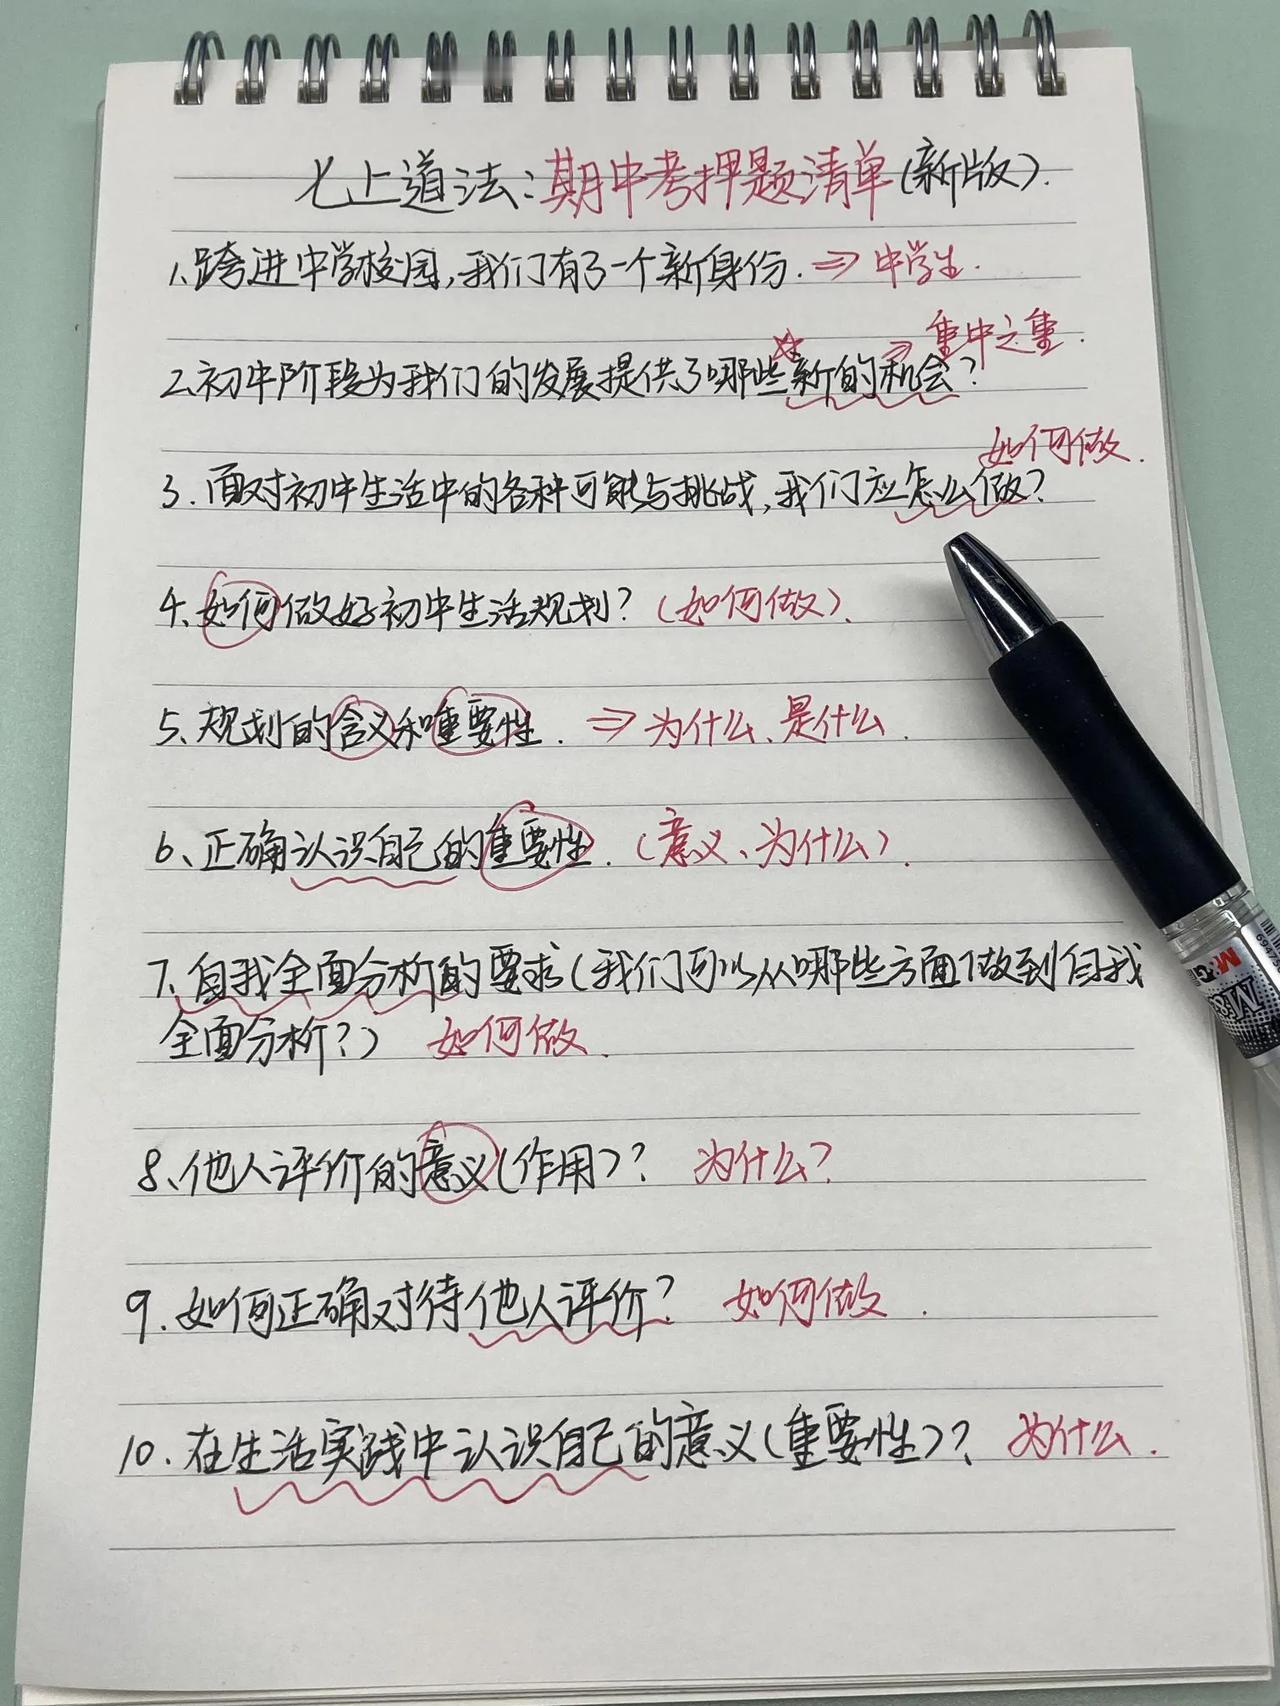 七上道法:期中考押题清单(新版).
1、跨进中学校园,我们有了一个新身份. ⇒ 中学生.
☆ ⇒ 重中之重.
2、初中阶段为我们的发展提供了哪些新的机会?
如何做.
3. 面对初中生活中的各种可能与挑战,我们应怎么做?
4、如何做好初中生活规划?(如何做).
5、规划的含义和重要性. ⇒ 为什么、是什么.
6、正确认识自己的重要性.(意义、为什么).
7、自我全面分析的要求(我们可以从哪些方面做到自我
全面分析?) 如何做.
8、他人评价的意义(作用)? 为什么?
9. 如何正确对待他人评价? 如何做.
10. 在生活实践中认识自己的意义(重要性)? 为什么.
M&G